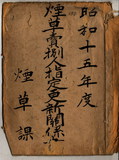 昭和十五年度
煙草賣捌人指定更新關係
煙草課